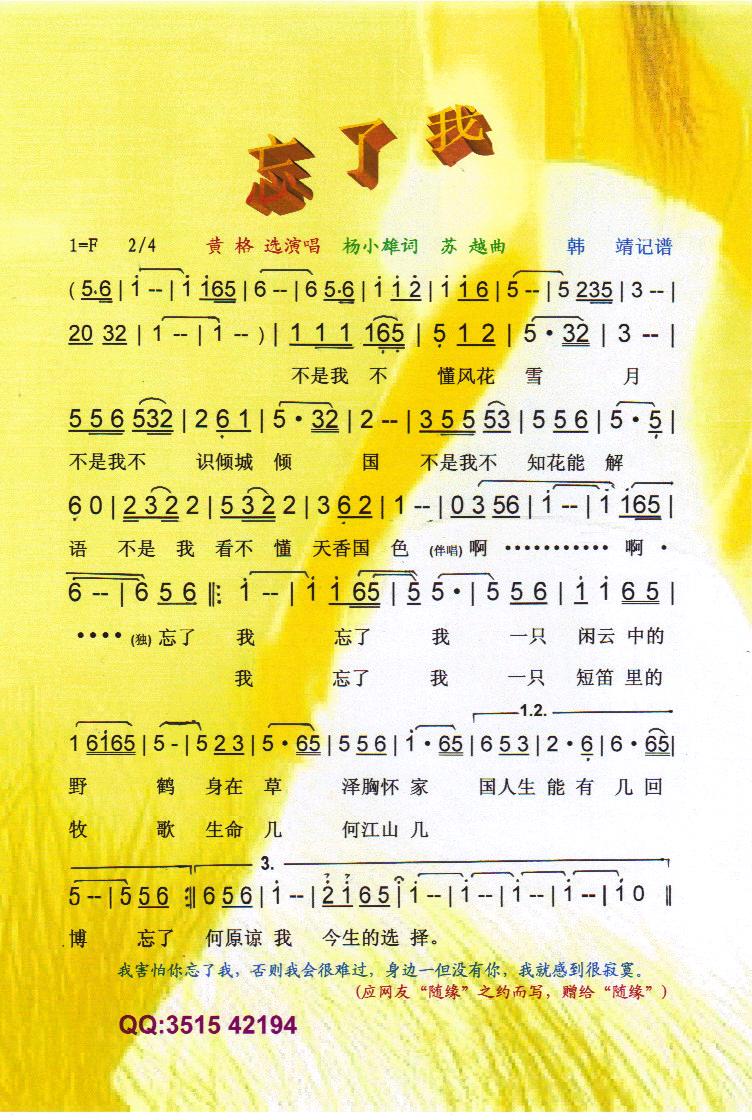 忘了我
1=F 2/4 黄 格 选演唱 杨小雄词 苏 越曲 韩 靖记谱
( 5·6 | 1 -- | 1 165 | 6 -- | 6 5·6 | 1 1 2 | 1 1 6 | 5 -- | 5 235 | 3 -- |
20 32 | 1 -- | 1 -- ) | 1 1 1 165 | 5 1 2 | 5 · 32 | 3 -- |
不是我 不 懂风花 雪 月
5 5 6 532 | 2 6 1 | 5 · 32 | 2 -- | 3 5 5 53 | 5 5 6 | 5 · 5 |
不是我不 识倾城 倾 国 不是我不 知花能 解
6 0 | 2 3 2 2 | 5 3 2 2 | 3 6 2 | 1 -- | 0 3 56 | 1 -- | 1 165 |
语 不是 我 看不 懂 天香国 色 (伴唱) 啊 ··········· 啊 ·
6 -- | 6 5 6 ‖: 1 -- | 1 1 65 | 5 5· | 5 5 6 | 1 1 6 5 |
···· (独) 忘了 我 忘了 我 一只 闲云 中的
我 忘了 我 一只 短笛 里的
1.2.
1 6165 | 5 - | 5 2 3 | 5 · 65 | 5 5 6 | 1 · 65 | 6 5 3 | 2 · 6 | 6 · 65 |
野 鹤 身在 草 泽胸怀 家 国人生 能 有 几 回
牧 歌 生命 几 何江山 几
3.
5 -- | 5 5 6 :‖ 6 5 6 | 1 -- | 2 1 6 5 | 1 -- | 1 -- | 1 -- | 1 0 ‖
博 忘了 何原谅 我 今生的 选 择。
我害怕你忘了我，否则我会很难过，身边一但没有你，我就感到很寂寞。
(应网友“随缘”之约而写，赠给“随缘”)
QQ:3515 42194